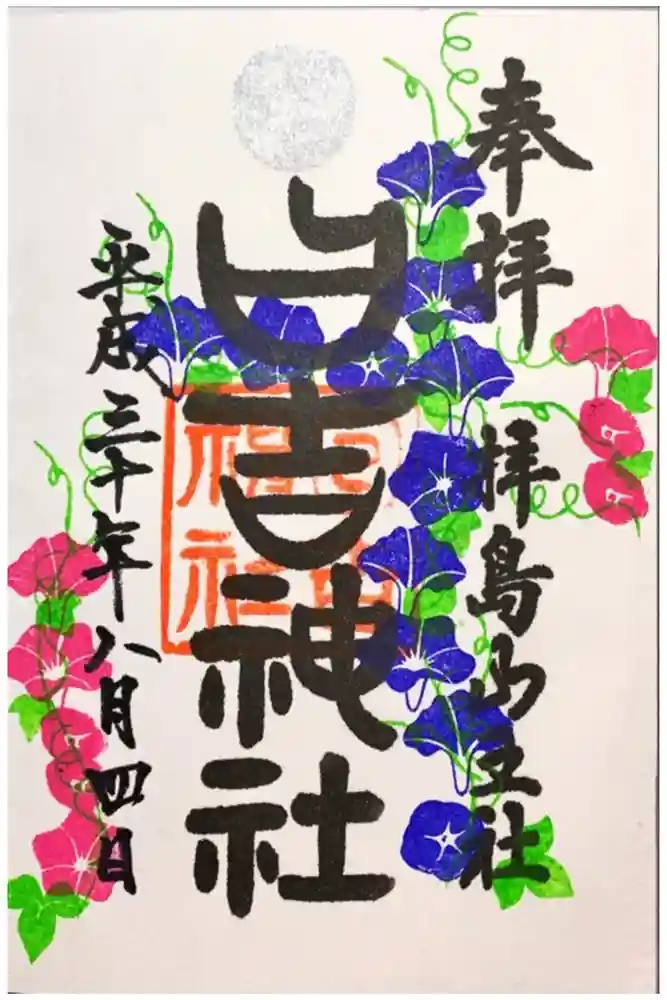 奉拝 拝島山王社
日吉神社
平成三十年八月四日